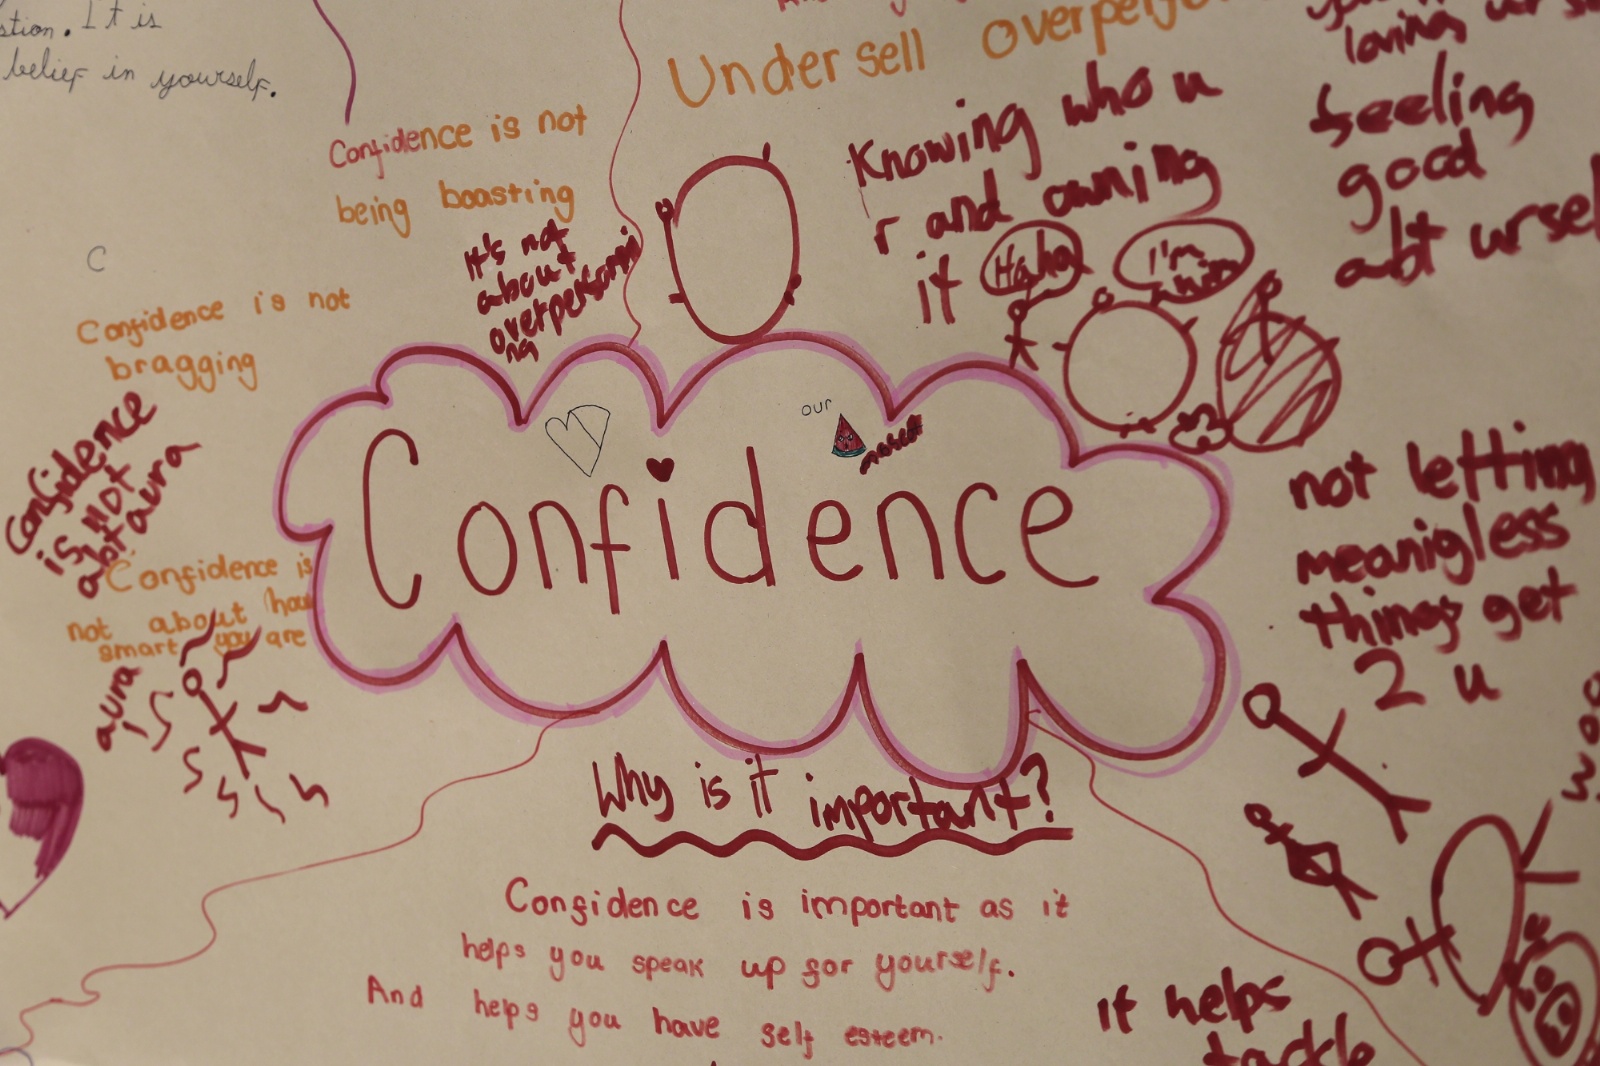 stion. It is
belief in yourself.
Undersell overperfo
loving urse
feeling
good
abt ursel
Knowing who u
r and owning
it
Haha
I'm
Confidence is not
being boasting
It's not
about
C
Confidence is not
bragging
Confidence
is NOT
abt aura
Confidence is
not about how
smart you are
aura
our
Confidence
not letting
meanigless
things get
2 u
Why is it important?
Confidence is important as it
helps you speak up for yourself.
And helps you have self esteem.
It helps
tackle